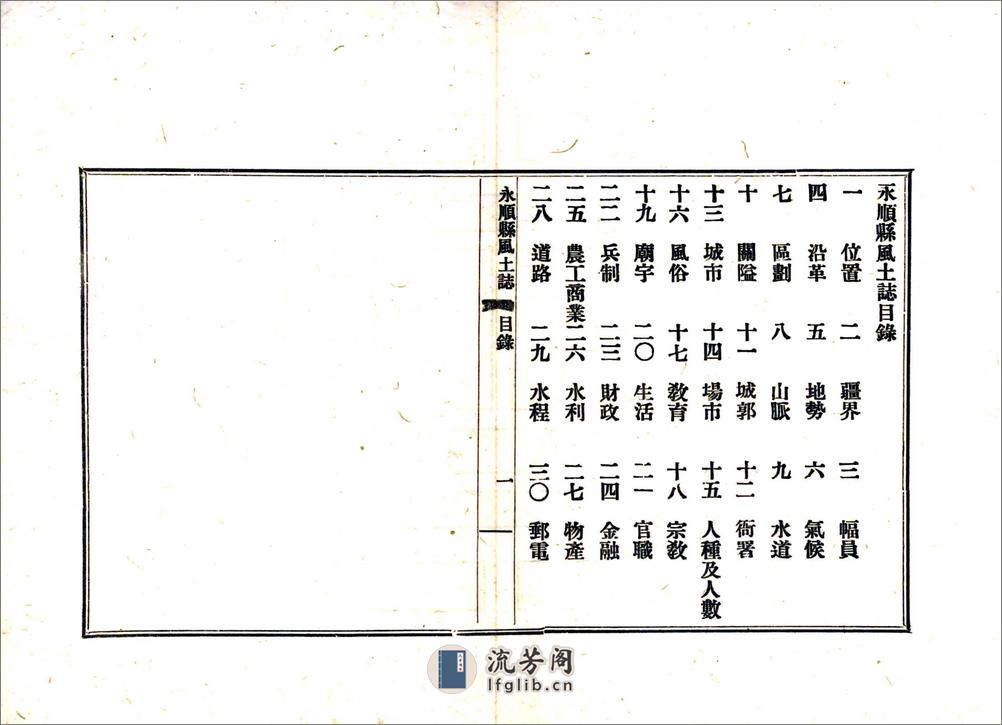 永順縣風土誌目錄
一 位置 二 疆界 三 幅員
四 沿革 五 地勢 六 氣候
七 區劃 八 山脈 九 水道
十 關隘 十一 城郭 十二 衙署
十三 城市 十四 場市 十五 人種及人數
十六 風俗 十七 敎育 十八 宗敎
十九 廟宇 二〇 生活 二一 官職
二二 兵制 二三 財政 二四 金融
二五 農工商業 二六 水利 二七 物產
二八 道路 二九 水程 三〇 郵電
永順縣風土誌 目錄 一
流芳阁
lfglib.cn